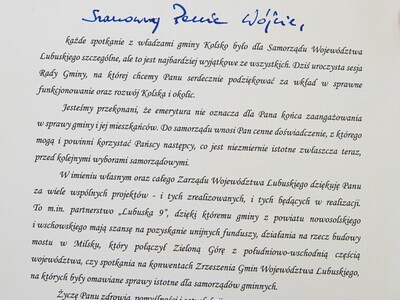 Szanowny Panie Wójcie,
każde spotkanie z władzami gminy Kolsko było dla Samorządu Województwa
Lubuskiego szczególne, ale to jest najbardziej wyjątkowe ze wszystkich. Dziś uroczysta sesja
Rady Gminy, na której chcemy Panu serdecznie podziękować za wkład w sprawne
funkcjonowanie oraz rozwój Kolska i okolic.
Jesteśmy przekonani, że emerytura nie oznacza dla Pana końca zaangażowania
w sprawy gminy i jej mieszkańców. Do samorządu wnosi Pan cenne doświadczenie, z którego
mogą i powinni korzystać Pańscy następcy, co jest niezmiernie istotne zwłaszcza teraz,
przed kolejnymi wyborami samorządowymi.
W imieniu własnym oraz całego Zarządu Województwa Lubuskiego dziękuję Panu
za wiele wspólnych projektów - i tych zrealizowanych, i tych będących w realizacji.
To m.in. partnerstwo „Lubuska 9”, dzięki któremu gminy z powiatu nowosolskiego
i wschowskiego mają szansę na pozyskanie unijnych funduszy, działania na rzecz budowy
mostu w Milsku, który połączył Zieloną Górę z południowo-wschodnią częścią
województwa, czy spotkania na konwentach Zrzeszenia Gmin Województwa Lubuskiego,
na których były omawiane sprawy istotne dla samorządów gminnych.
Życzę Panu zdrowia, pomyślności